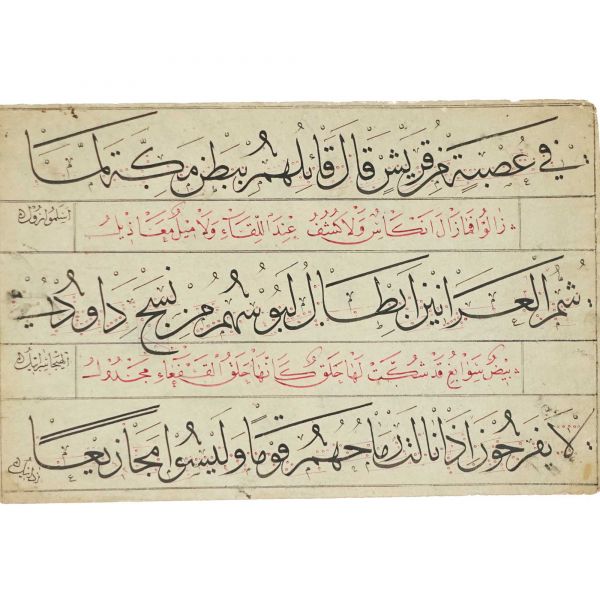 في عصبة من قريش قال قائلهم ببطن مكة لما
اسلموا زولوا
زالوا فما زال انكاس ولا كشف عند اللقاء ولا ميل معاذيل
شم العرانين ابطال لبوسهم من نسج داود في
الهيجا سرابيل
بيض سوابغ قد شكت لها حلق كانها حلق القفعاء مجدول
لا يفرحون اذا نالت رماحهم قوما وليسوا مجازيعا
اذا نيلوا